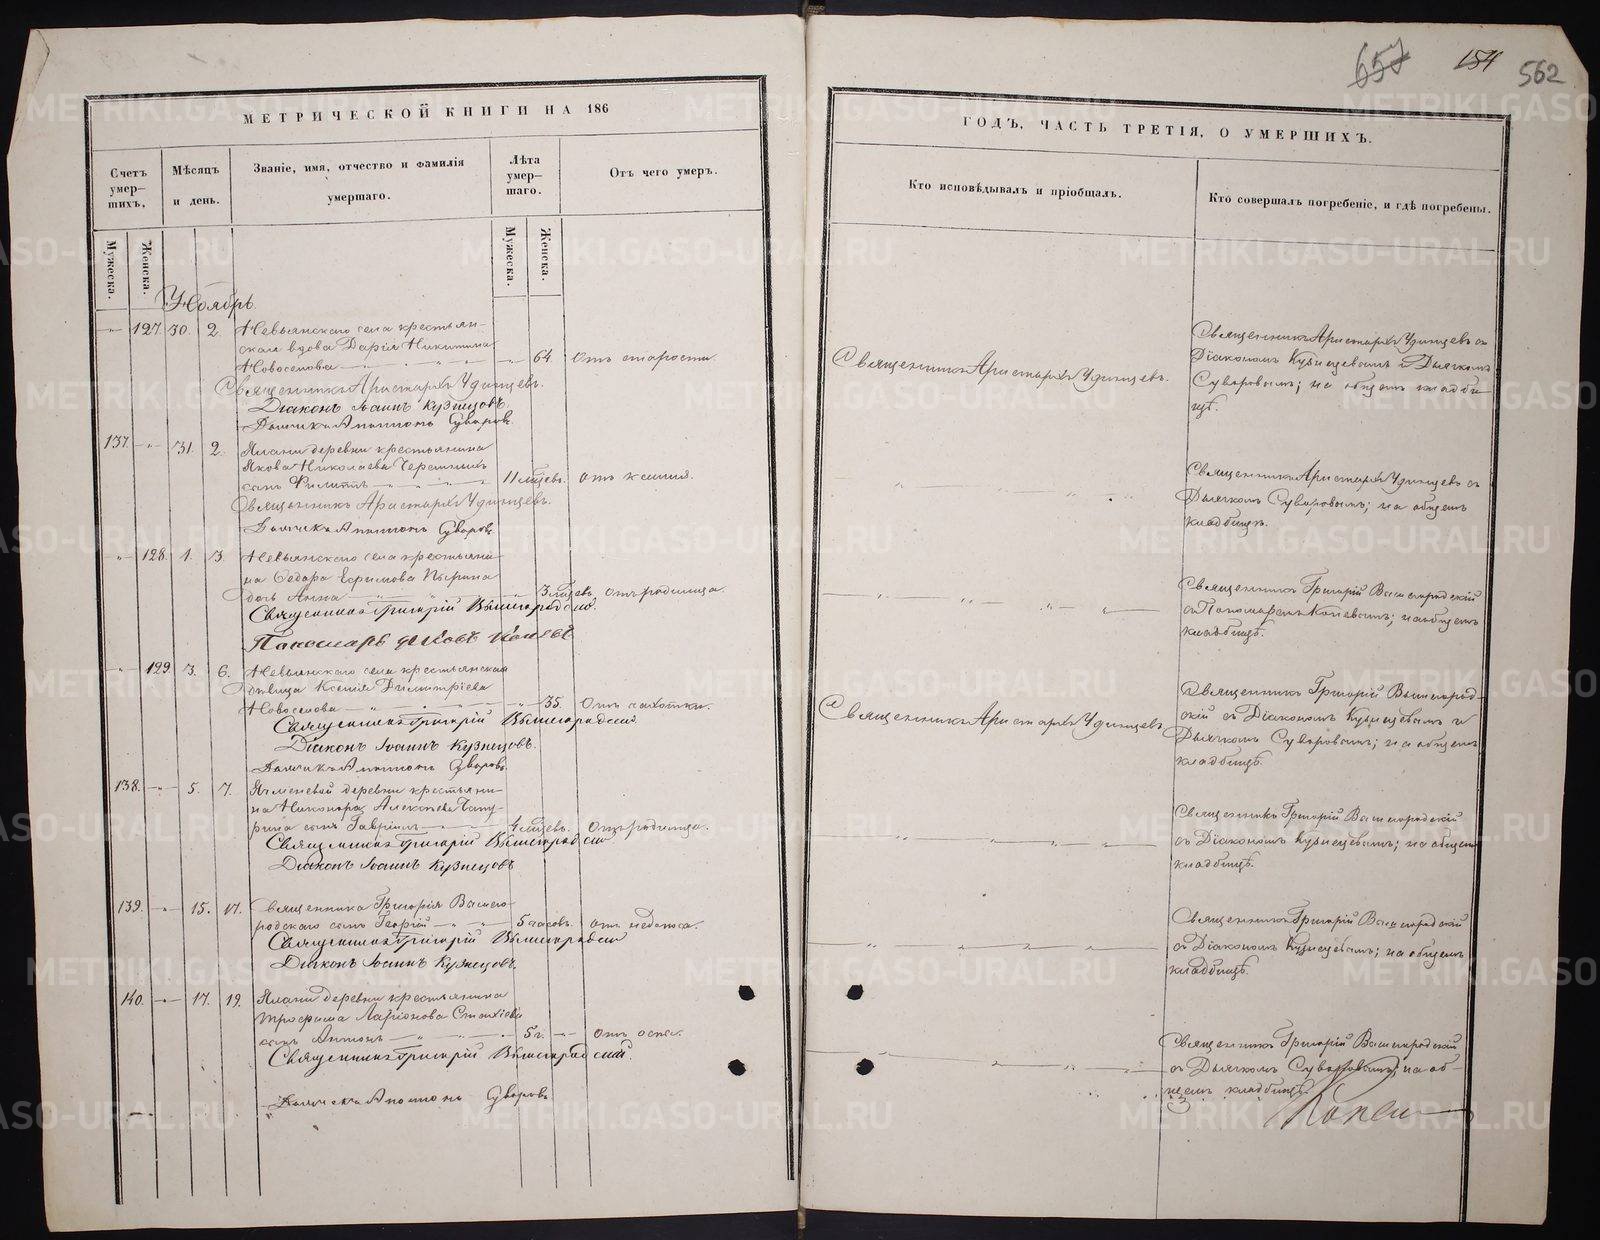 657 154 562
МЕТРИЧЕСКОЙ КНИГИ НА 186
ГОДЪ, ЧАСТЬ ТРЕТІЯ, О УМЕРШИХЪ.
Счетъ умер-шихъ.
Мѣсяцъ и день.
Званіе, имя, отчество и фамилія
умершаго.
Лѣта умер-шаго.
Отъ чего умеръ.
Кто исповѣдывалъ и пріобщалъ.
Кто совершалъ погребеніе, и гдѣ погребены.
Мужеска.
Женска.
Мужеска.
Женска.
Ноябрь.
127. 30. 2. Невьянскаго села крестьян-
ская вдова Дарія Никитина
Новоселова 64. отъ старости.
Священникъ Аристархъ Удинцевъ.
Діаконъ Іоаннъ Кузнецовъ.
Дьячекъ Аполлонъ Суворовъ
Священникъ Аристархъ Удинцевъ.
Священникъ Аристархъ Удинцевъ съ
Діакономъ Кузнецовымъ и Дьячкомъ
Суворовымъ; на общемъ кладби-
щѣ.
137. 31. 2. деревни крестьянина
Якова Николаева
сынъ Филиппъ 11 мѣсяцев. отъ кашля.
Священникъ Аристархъ Удинцевъ.
Дьячекъ Аполлонъ Суворовъ
Священникъ Аристархъ Удинцевъ съ
Дьячкомъ Суворовымъ; на общемъ
кладбищѣ.
128. 1. 3. Невьянскаго села крестьяни-
на Ѳедора Ефимова
дочь Анна 3 мѣсяцев. отъ родимца.
Священникъ Григорій Вышегородскій.
Пономарь Яковъ Копевъ
Священникъ Григорій Вышегородскій
съ Пономаремъ Копевымъ; на общемъ
кладбищѣ.
129. 3. 6. Невьянскаго села крестьянская
дѣвица Ксенія Димитріева
Новоселова 35. Отъ чахотки.
Священникъ Григорій Вышегородскій
Діаконъ Іоаннъ Кузнецовъ.
Дьячекъ Аполлонъ Суворовъ
Священникъ Аристархъ Удинцевъ
Священникъ Григорій Вышегород-
скій съ Діакономъ Кузнецовымъ и
Дьячкомъ Суворовымъ; на общемъ
кладбищѣ.
138. 5. 7. деревни крестьяни-
на Никонора Алексѣева
сынъ Гавріилъ 4 мѣсяцев. Отъ родимца.
Священникъ Григорій Вышегородскій
Діаконъ Іоаннъ Кузнецовъ
Священникъ Григорій Вышегородскій
съ Діакономъ Кузнецовымъ; на общемъ
кладбищѣ.
139. 15. 17. Священника Григорія Вышего-
родскаго сынъ Георгій 5 часовъ. отъ недоноса.
Священникъ Григорій Вышегородскій
Діаконъ Іоаннъ Кузнецовъ.
Священникъ Григорій Вышегородскій
съ Діакономъ Кузнецовымъ; на общемъ
кладбищѣ.
140. 17. 19. деревни крестьянина
Трофима Ларіонова
сынъ Антонъ 5 г. отъ оспы.
Священникъ Григорій Вышегородскій.
Дьячекъ Аполлонъ Суворовъ
Священникъ Григорій Вышегородскій
съ Дьячкомъ Суворовымъ; на об-
щемъ кладбищѣ.
METRIKI.GASO-URAL.RU